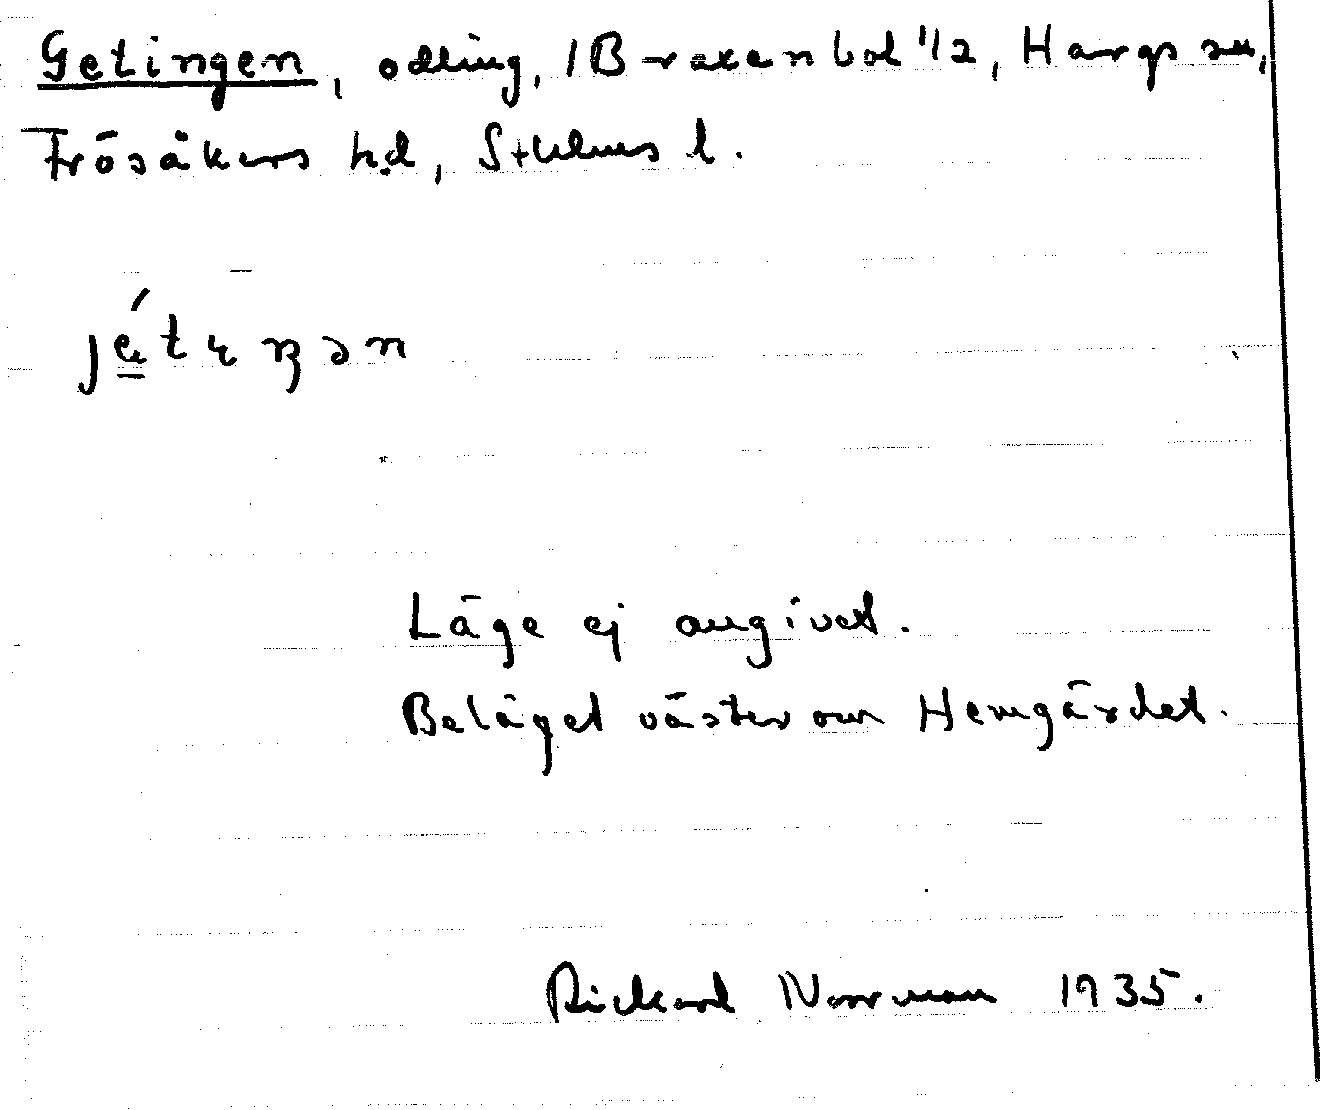 Getingen, odling, /Braxenbol 1/2, Hargs sn,
Frösåkers hd, Sthlms l.
Läge ej angivet.
Beläget väster om Hemgärdet.
Rickard Norrman 1935.